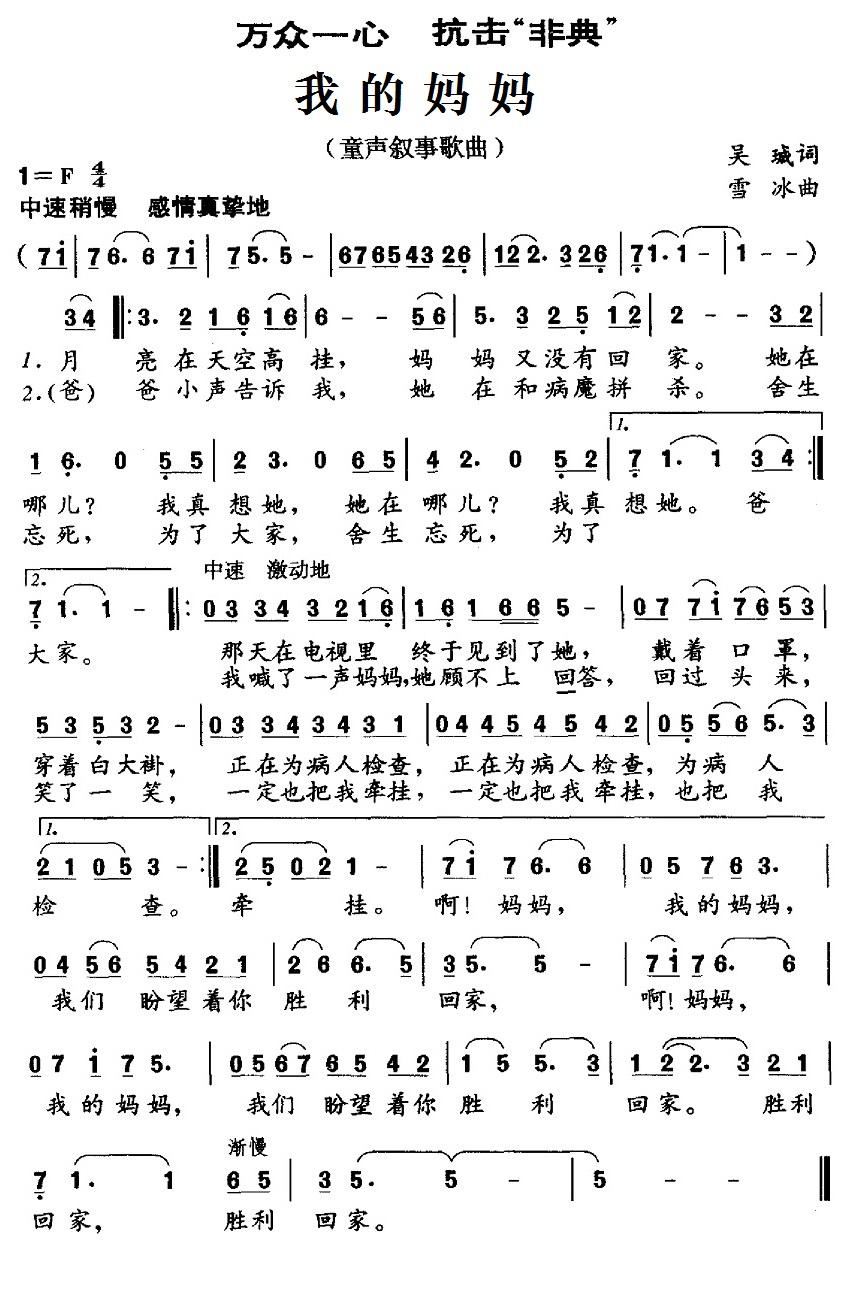 万众一心 抗击“非典”
我的妈妈
（童声叙事歌曲）
吴 珹词
1=F 4/4
雪 冰曲
中速稍慢 感情真挚地
( 7i | 76. 6 7i | 75. 5 - | 67654326 | 122. 326 | 71. 1 - | 1 - - )
34 ‖: 3. 2 16 16 | 6 - - 56 | 5. 3 25 12 | 2 - - 32 |
1. 月 亮在天空高挂， 妈 妈又没有回 家。 她在
2.(爸) 爸小声告诉我， 她 在和病魔拼 杀。 舍生
1.
1 6. 0 55 | 2 3. 0 65 | 4 2. 0 52 | 7 1. 1 34 :‖
哪儿？ 我真想她， 她在哪儿？ 我真想她。 爸
忘死， 为了大家， 舍生忘死， 为了
2. 中速 激动地
7 1. 1 - ‖: 03 34 3216 | 16 166 5 - | 07 7i 7653 |
大家。 那天在电视里 终于见到了她， 戴着口罩，
我喊了一声妈妈,她顾不上 回答， 回过头来，
53 532 2 - | 03 34 34 31 | 04 45 45 42 | 05 56 5. 3 |
穿着白大褂， 正在为病人检查，正在为病人检查，为病 人
笑了一笑， 一定也把我牵挂，一定也把我牵挂，也把 我
1. 2.
21 05 3 - :‖ 25 02 1 - | 7i 76. 6 | 05 76 3. |
检 查。 牵 挂。 啊！妈妈， 我的妈妈，
04 56 54 21 | 26 6. 5 | 35. 5 - | 7i76 6. 6 |
我们 盼望着你胜 利 回家， 啊！妈妈，
07 i 75. | 0567 65 42 | 15 5. 3 | 122. 321 |
我的妈妈， 我们 盼望着你胜 利 回家。 胜利
渐慢
7 1. 1 65 | 3 5. 5 - | 5 - - ‖
回家， 胜利 回家。